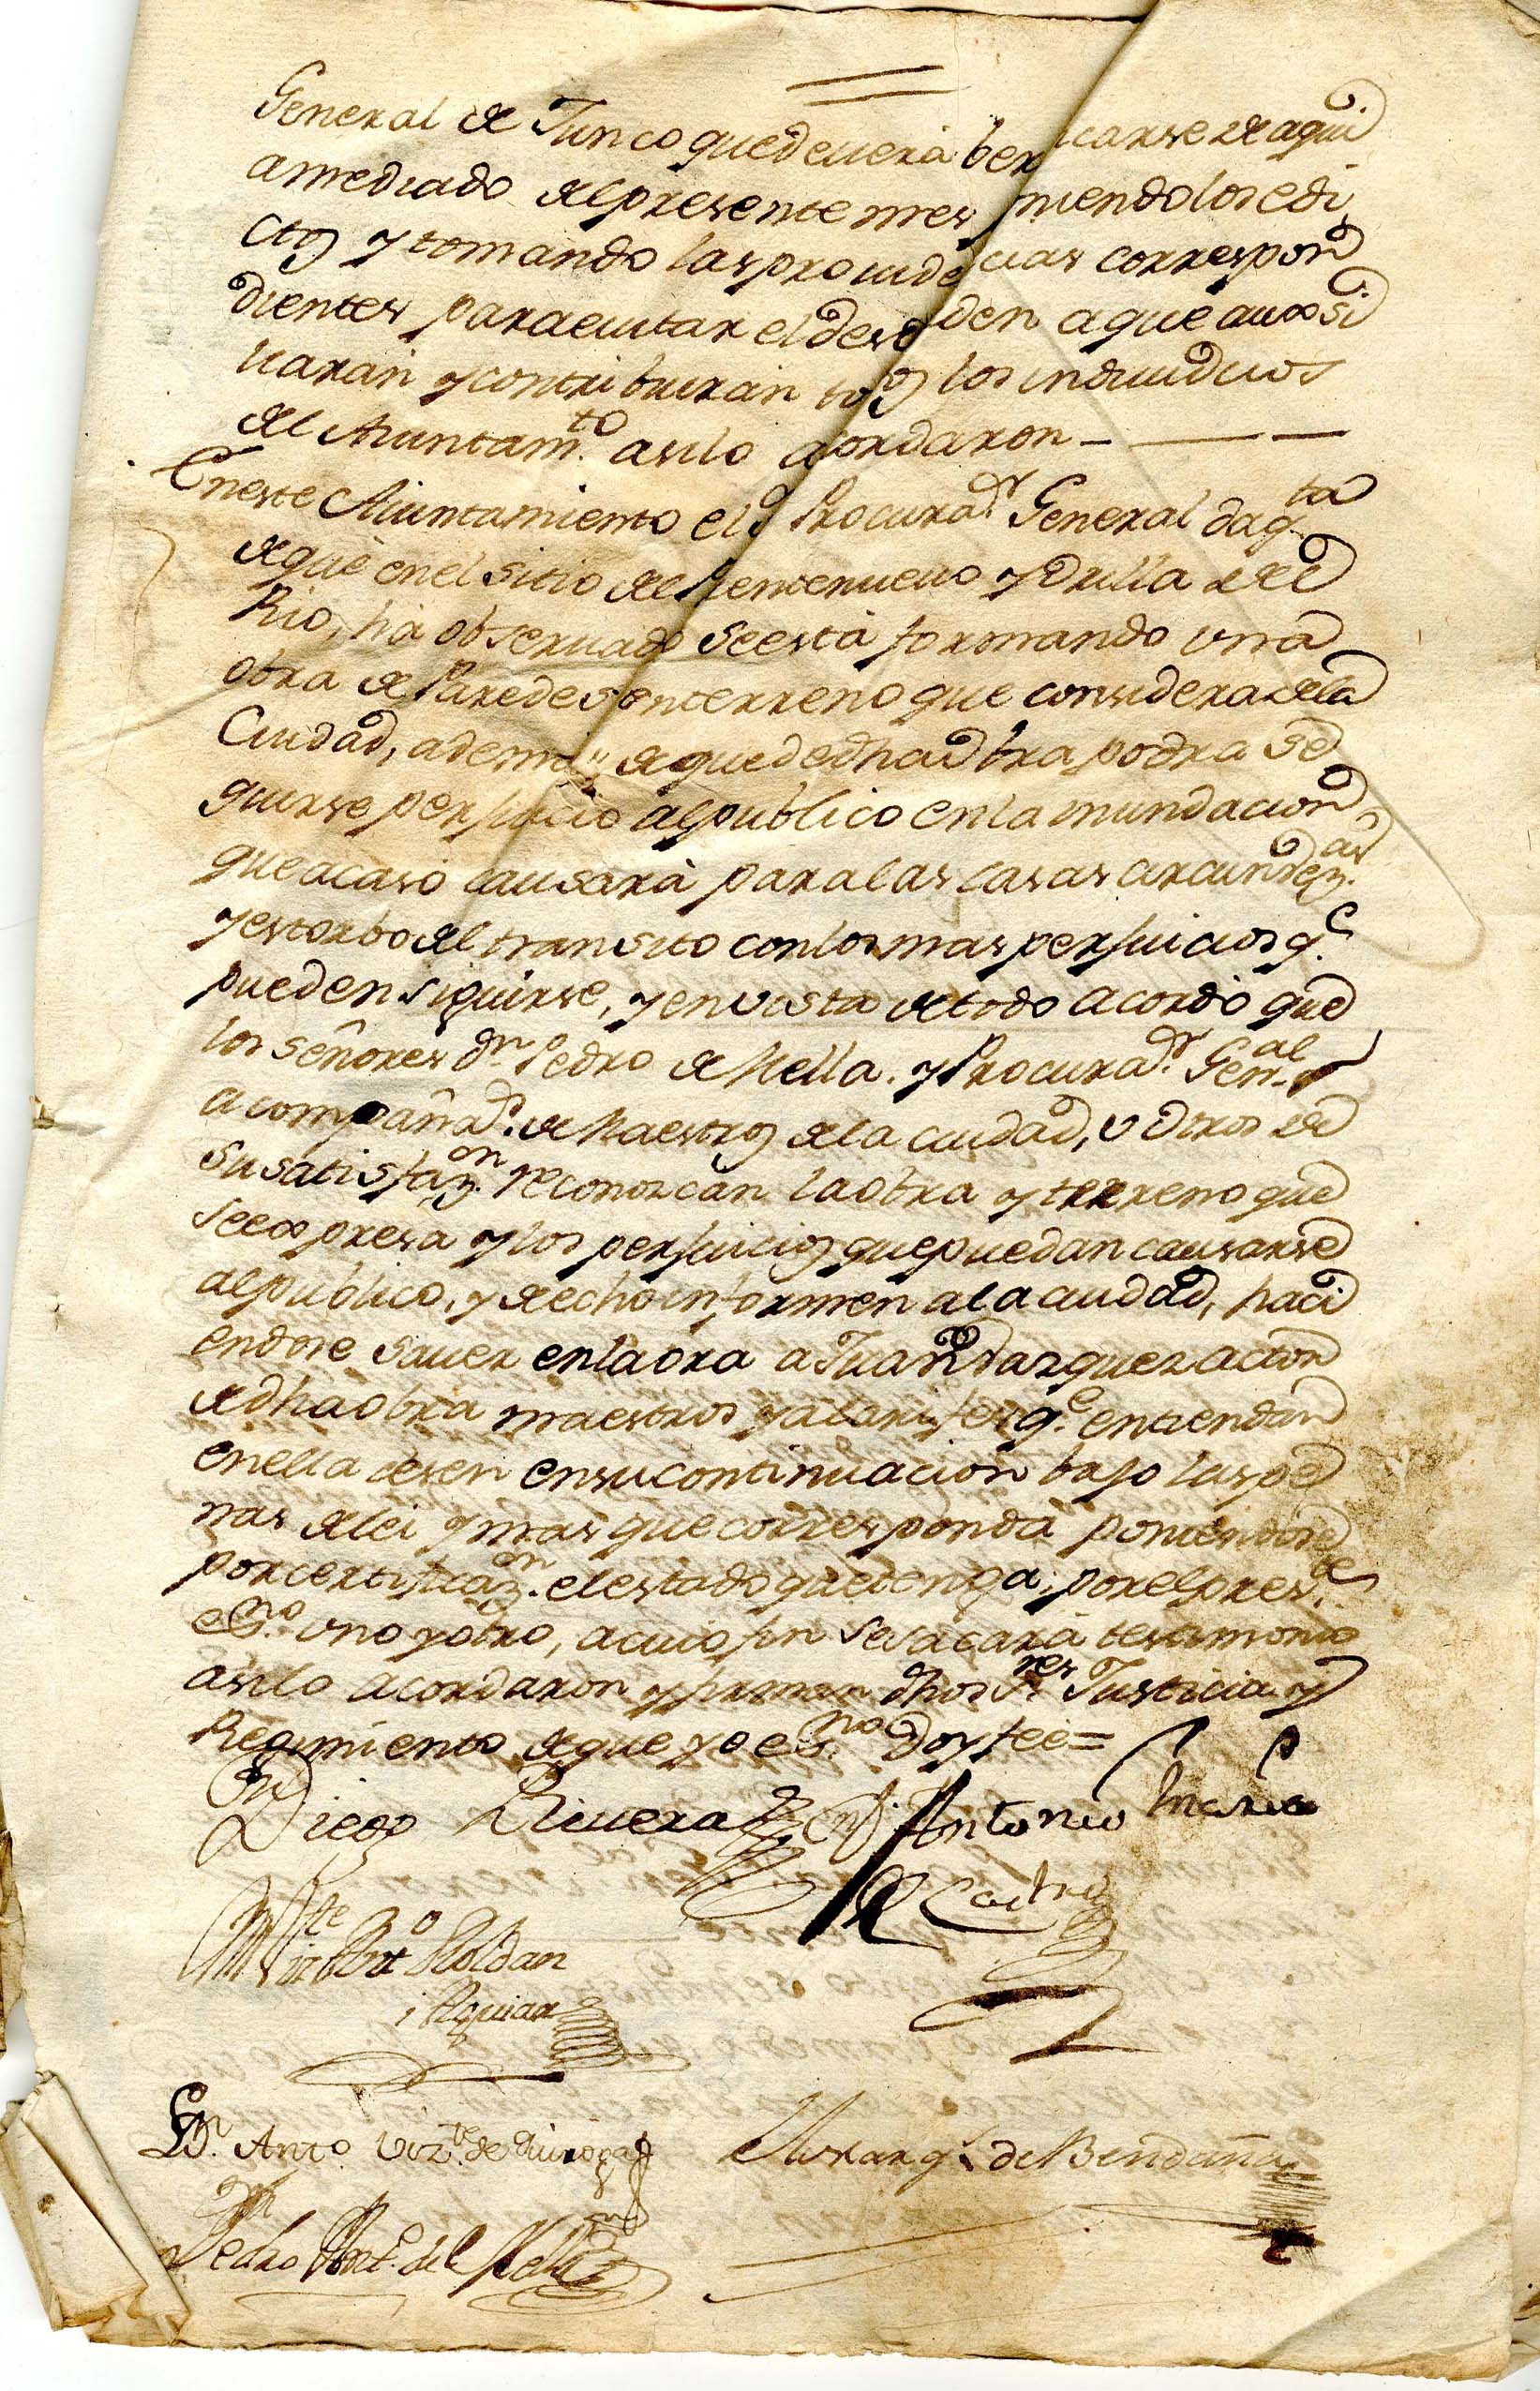 General de Junco que deuerá ber icarse de aqui
amediado del presente mes niendo los edi
ctos y tomando las prouide cias correspon
dientes para euitar el deso den a que auxsi
liarán y contribuirán tos los indiuiduos
del Aiuntamto. asilo acordaron —
En este Aiuntamiento el Procurador. General da qta
de que en el sitio del Puentenueuo y Orilla del
Rio, há obseruado se está formando vna
obra de Paredes en terreno que considera de la
Ciudad, ademas de que de dha obra podra se
guirse perjuicio al publico en la inundacion
que acaso causará para las casas circundezas.
y estorbo del transito con los mas perjuicios qe.
pueden siguirse, y en vista de todo acordó que
los señores dn Pedro de Mella. y Procurador. Genal
acompañados. de Maestros de la ciudad, v otros de
su satisfazon. reconozcan la obra y terreno que
se expresa y los perjuicios que puedan causarse
al publico, y de echo informen a la ciudad, haci
endose sauer en la ora a Juan Vazquez actor
de dha obra maestros y alarifes qe. entiendan
en ella cesen en su continuacion bajo las pe
nas de lei y mas que corresponda poniendose
por certificazon. el estado que tenga, por el preste.
esno. vno y otro, a cuio fin se sacará testimonio
asilo acordaron y firman dhos Sres Justicia y
Regimiento de que yo esno. doy fee =
Diego Riuera Dn. Antonio Maria
de Castro
Vizte Anto Roldan
i Aguiar
Ldn. Anto. Vizte. de Quiroga Marqs. de Bendaña
Dn Pedro Anto. de la Mella